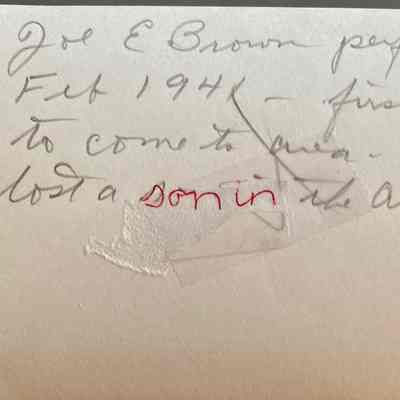 Joe E Brown per
Feb 194 - firs
to come to area.
lost a son in the a